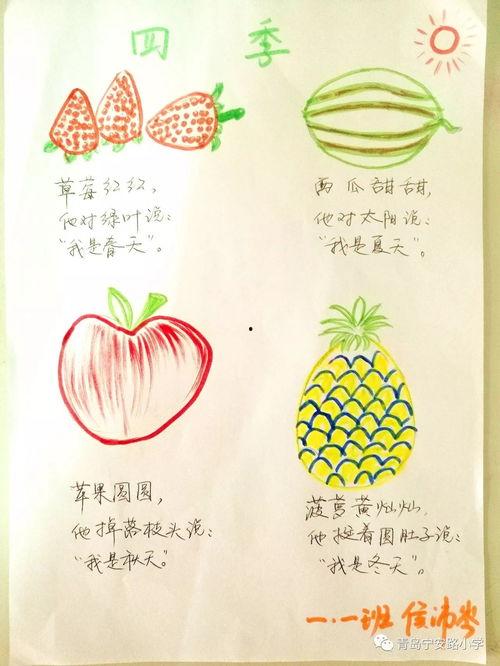 四季
草莓红红，
他对绿叶说：
“我是春天”。
西瓜甜甜，
他对太阳说：
“我是夏天”。
苹果圆圆，
他掉落枝头说：
“我是秋天”。
菠萝黄灿灿，
他挺着圆肚子说：
“我是冬天”。
一.一班 侯沛岑
青岛宁安路小学